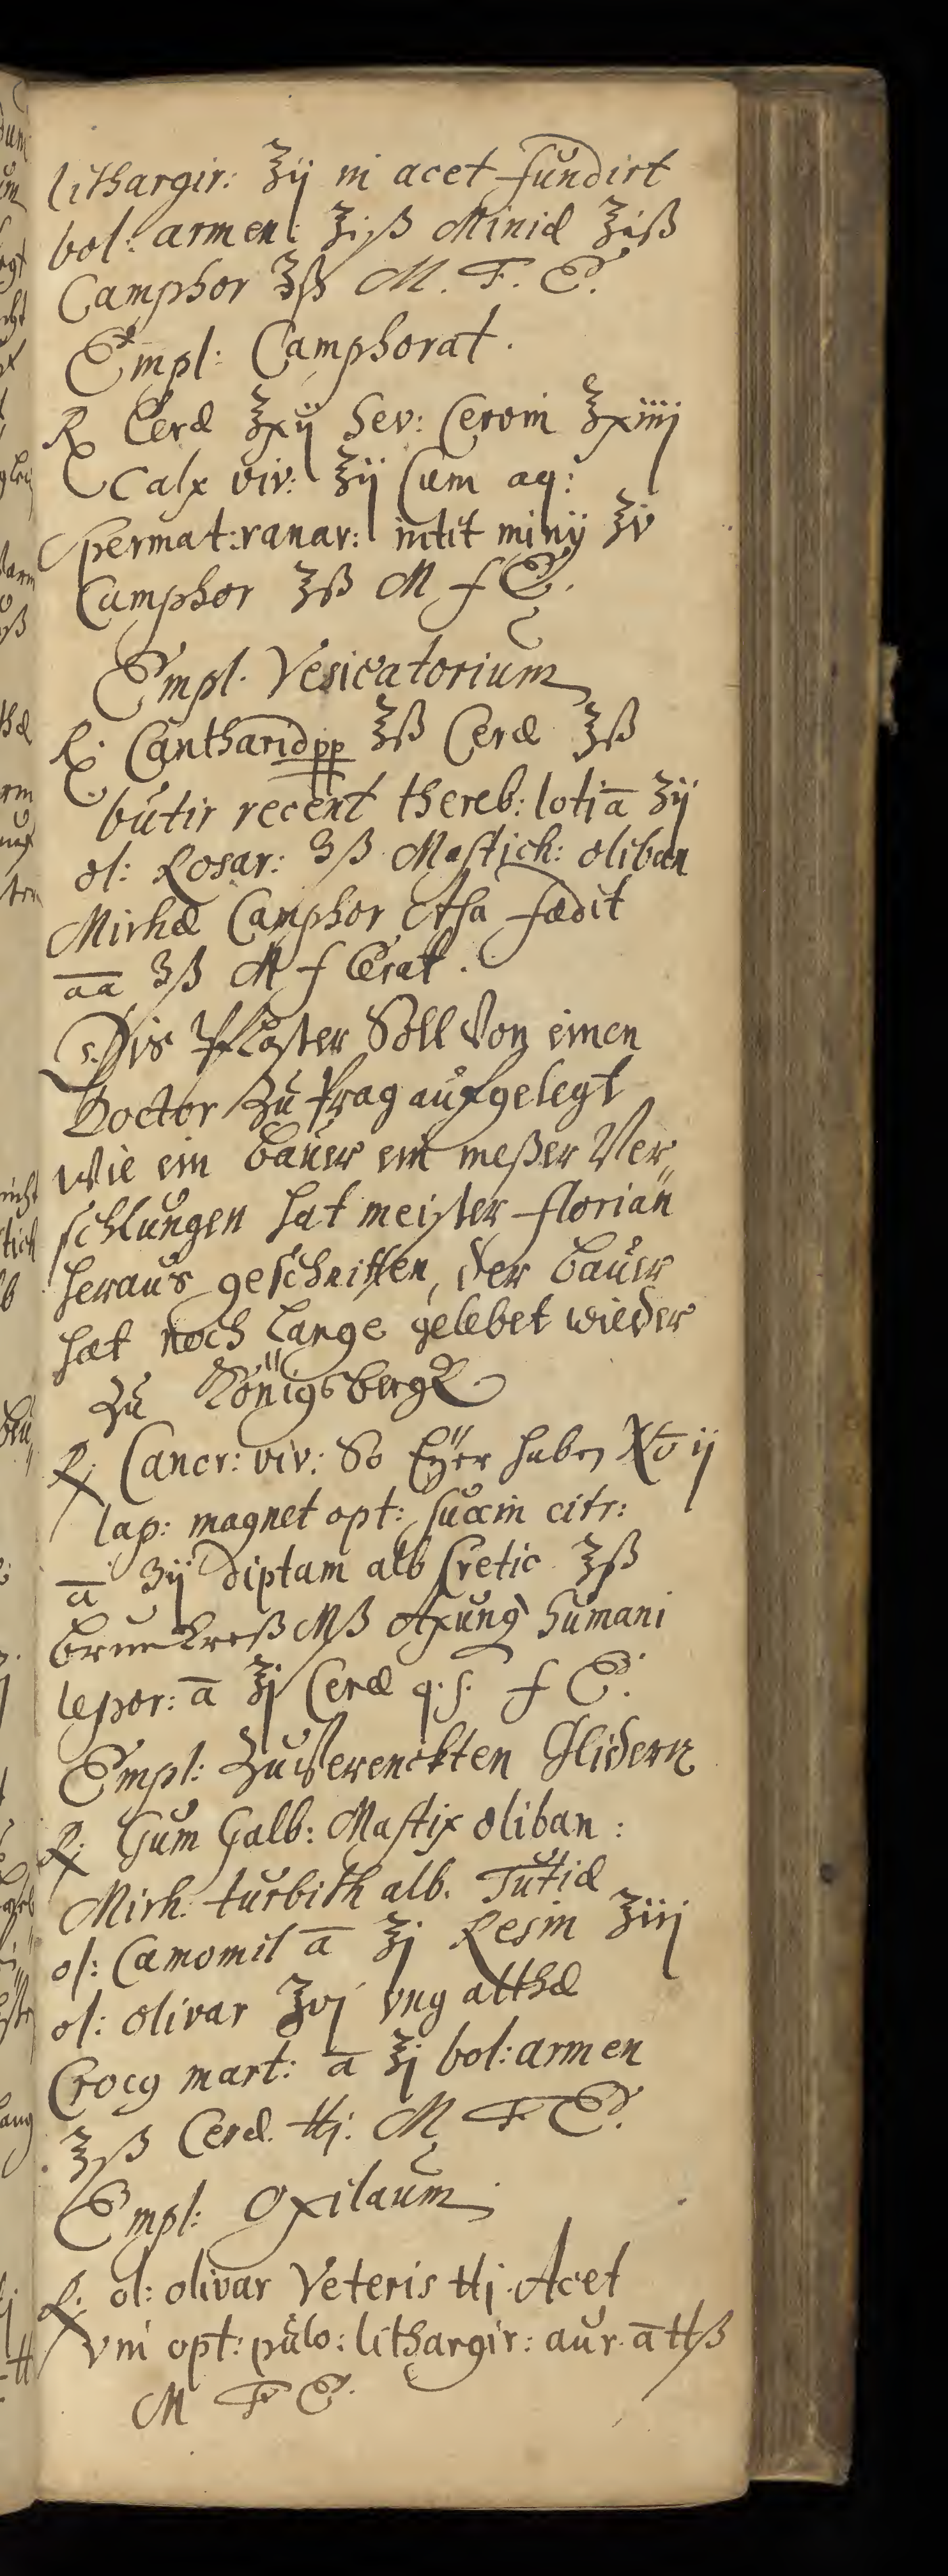 lithargir: ℥ij in acet fundirt
bol: armen: ℥iß Miniæ ℥iß
Camphor ℥ß M. F. E.
Empl: Camphorat.
℞ Ceræ ℥xij Sev: Cervin ℥xiiij
Calx viv: ℥ij Cum aq:
Spermat: ranar: intit minij ℥v
Camphor ℥ß M f E.
Empl. Vesicatorium
℞ Cantharid pp ℥ß Ceræ ℥ß
butir recent thereb: loti ā ʒij
ol: Rosar: ʒß Mastich: oliban
Mirhæ Camphor Asa fædit
āā ʒß M f Cerat.
Dis Pflaster Soll Von einen
Doctor Zu Prag aufgelegt
Wie ein Bauer ein meßer Ver„
schlungen hat meister Florian
heraus geschnitten, der bauer
hat noch lange gelebet wieder
Zu Königsbergk
℞ Cancr: viv: So Eÿer haben No ij
lap: magnet opt: suxin citr:
ā ʒij diptam alb Cretic ℥ß
Brunkreß Mß Axung humani
lepor: ā ℥j Ceræ q. s. f E.
Empl: Zu Verenckten Glidern
℞ Gum Galb: Mastix oliban:
Mirh. turbith alb. Tutiæ
ol: Camomil ā ℥j Resin ℥iij
ol: olivar ℥vj vng althæ
Crocq mart: ā ℥j bol: armen
℥ß Ceræ ℔j: M F E.
Empl: Oxilaum
℞ ol: olivar Veteris ℔j. Acet
vni opt: pulv: lithargir: aur. ā ℔ß
M F E.